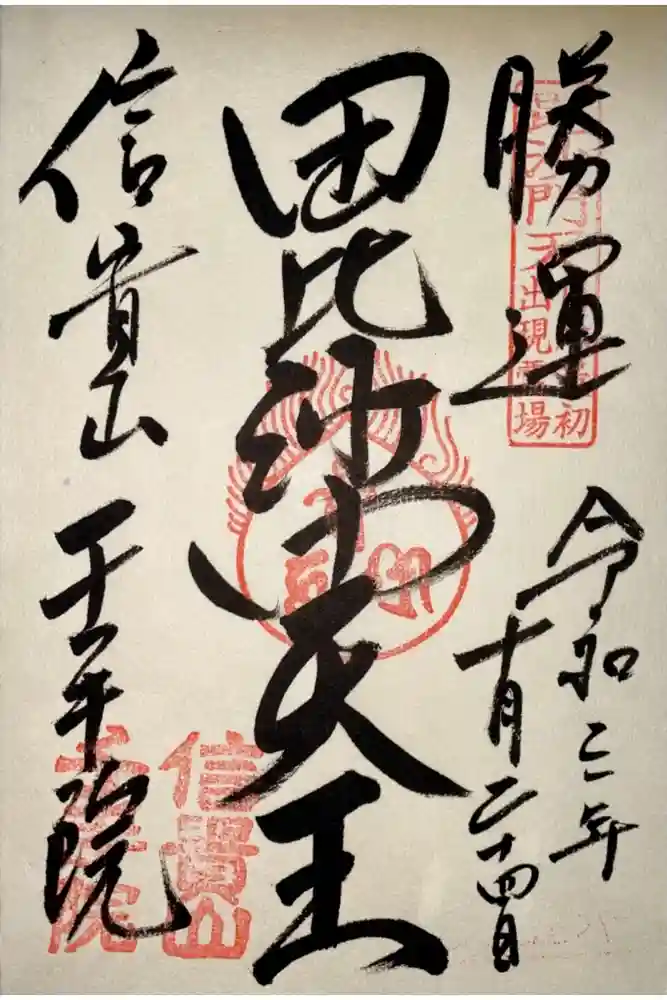 勝運
令和三年
十月二十四日
毘沙門天王
信貴山
千手院
毘沙門天出現霊場
信貴山
千手院